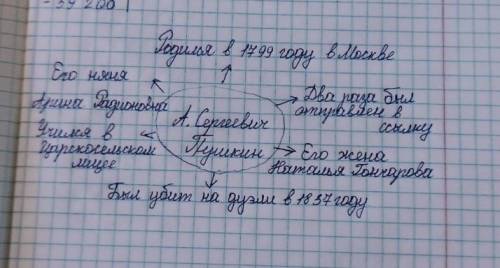 - 59 200
Родился в 1799 году в Москве
Его няня
Арина Радионовна
Учился в
Царскосельском
лицее
А. Сергеевич
Пушкин
Два раза был
отправлен в
ссылку
Его жена
Наталья Гончарова
Был убит на дуэли в 1837 году